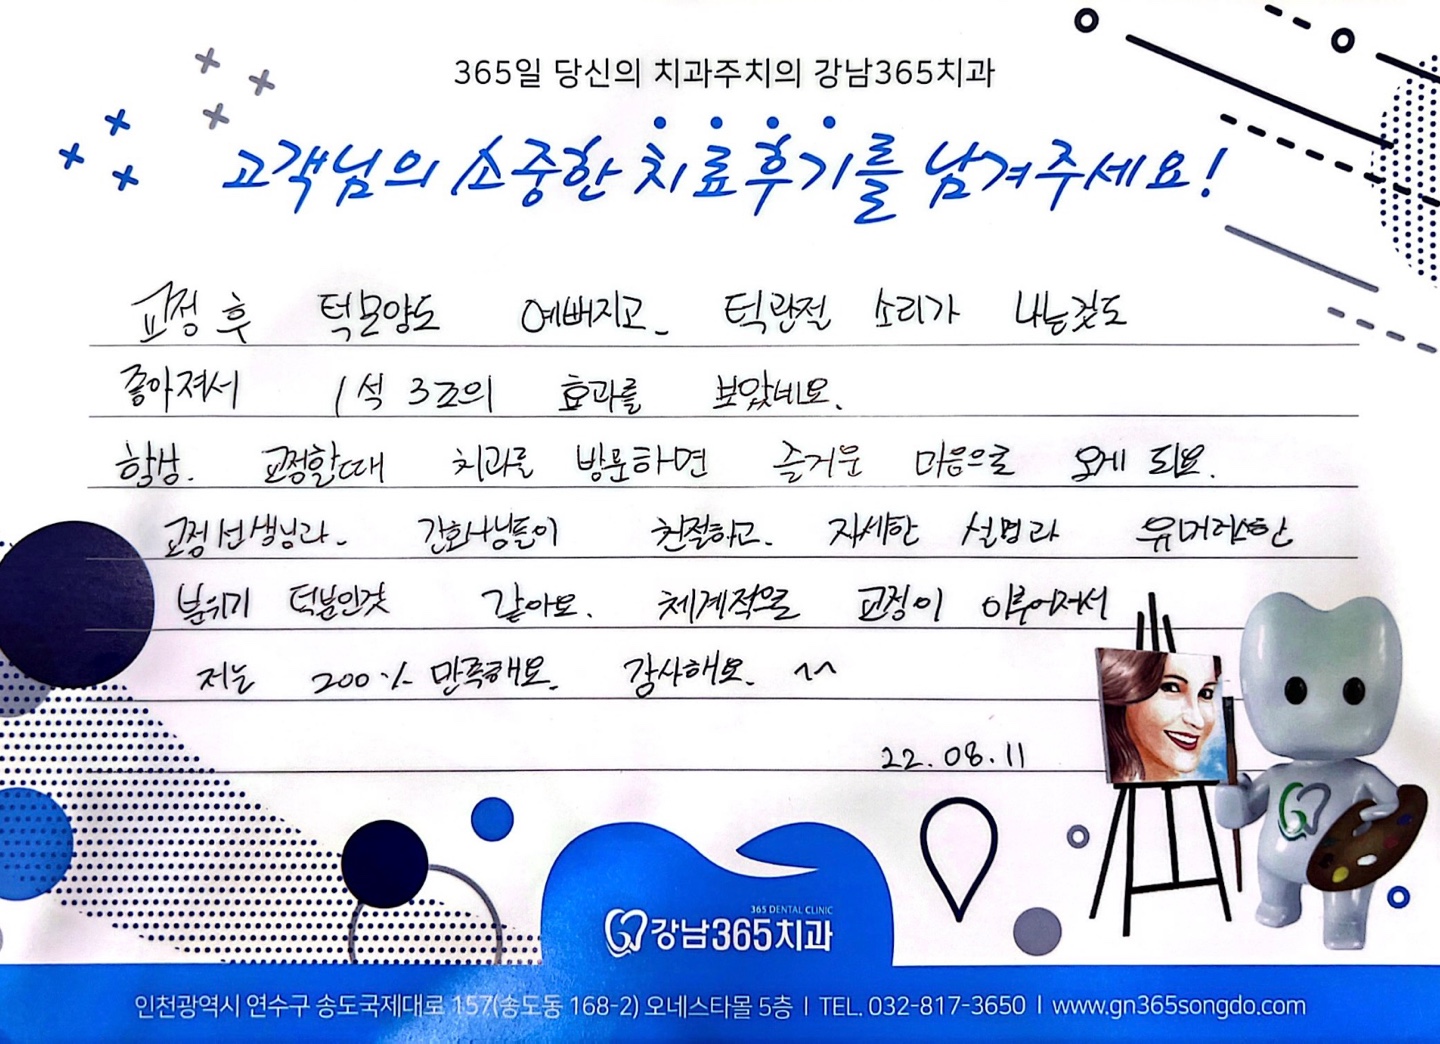 365일 당신의 치과주치의 강남365치과
고객님의 소중한 치료후기를 남겨주세요!
교정 후 턱모양도 예뻐지고. 턱관절 소리가 나는것도
좋아져서 1석 3조의 효과를 보았네요.
항상. 교정할때 치과를 방문하면 즐거운 마음으로 오게 되요.
교정선생님과. 간호사님들이 친절하고. 자세한 설명과 유머러스한
분위기 덕분인것 같아요. 체계적으로 교정이 이루어져서
저는 200% 만족해요. 감사해요. ^^
22.08.11
365 DENTAL CLINIC
강남365치과
인천광역시 연수구 송도국제대로 157(송도동 168-2) 오네스타몰 5층 | TEL. 032-817-3650 | www.gn365songdo.com